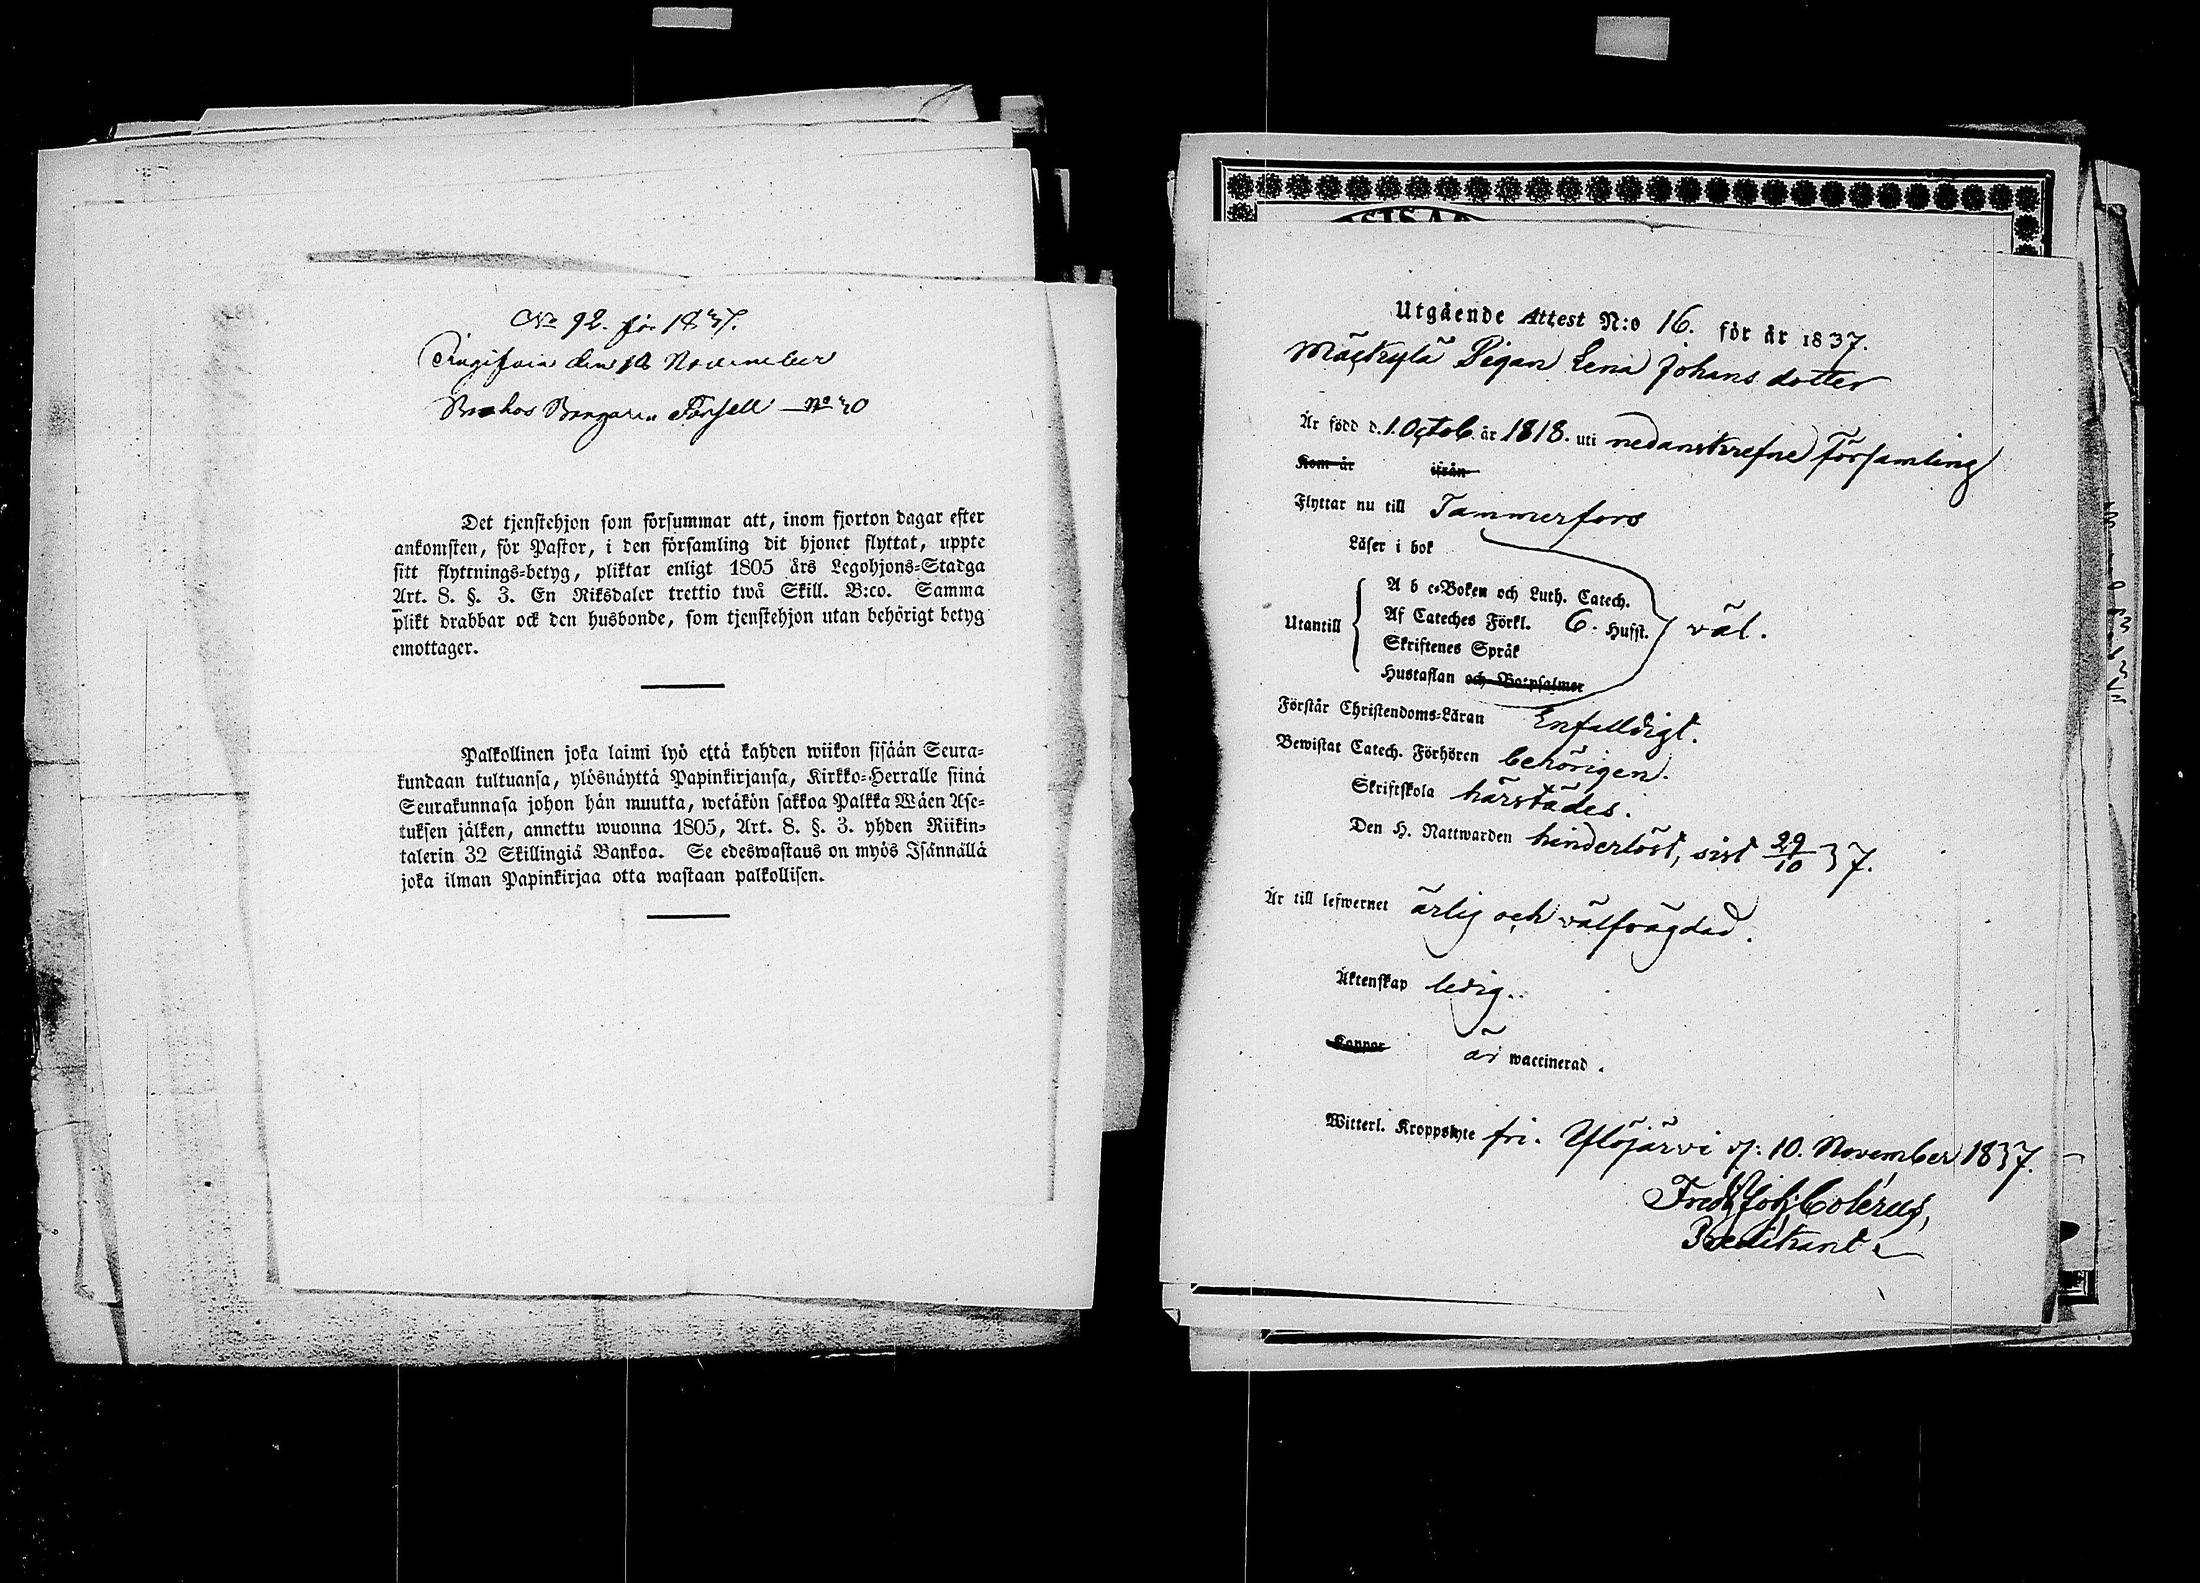 No 92. för 1837.
den 18 November
Forsell No 30
Det tjenstehjon som försummar att, inom fjorton dagar efter
ankomsten, för Pastor, i den församling dit hjonet flyttat, uppte
sitt flyttnings-betyg, pliktar enligt 1805 års Legohjons-Stadga
Art. 8. §. 3. En Riksdaler trettio twå Skill. B:co. Samma
plikt drabbar ock den husbonde, som tjenstehjon utan behörigt betyg
emottager.
Palkollinen joka laimi lyö että kahden wiikon sisään Seura-
kundaan tultuansa, ylösnäyttä Papinkirjansa, Kirkko-Herralle siinä
Seurakunnasa johon hän muutta, wetäkön sakkoa Palkka Wäen Ase-
tuksen jälken, annettu wuonna 1805, Art. 8. §. 3. yhden Riikin-
talerin 32 Skillingiä Bankoa. Se edeswastaus on myös Isännällä
joka ilman Papinkirjaa otta wastaan palkollisen.
Utgående Attest N:o 16. för år 1837.
Mäckylä Pigan Lena Johans dotter
Är född d. 1. Octob. år 1818. uti nedanskrefne Församling
Kom år ifrån
Flyttar nu till Tammerfors
Läser i bok
A b c-Boken och Luth. Catech.
Utantill Af Cateches Förkl. 6. Hufst. väl.
Skriftenes Språk
Hustaflan och Bo:psalmer
Förstår Christendoms-Läran Enfalldigt.
Bewistat Catech. Förhören behörigen.
Skriftskola härstädes.
Den H. Nattwarden hinderlöst, sist 29/10 37.
Är till lefwernet ärlig och välfrägdad.
Äktenskap ledig.
Koppor är waccinerad.
Witterl. Kroppslyte fri. Ylöjärvi d: 10. November 1837.
Fredr Joh: Colerus,
Predikant.